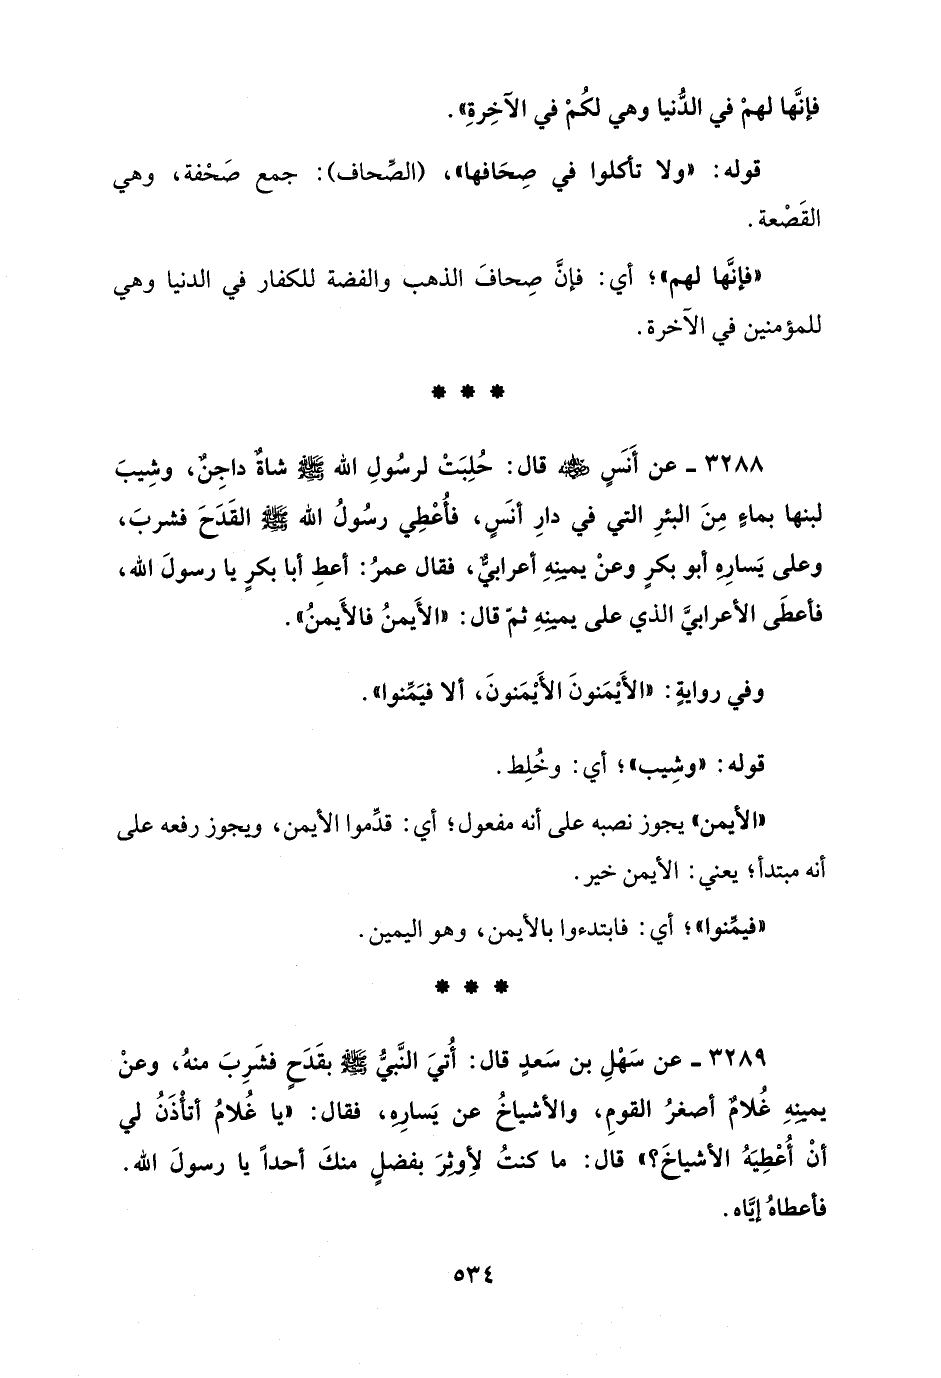 فإنَّها لهمْ في الدُّنيا وهي لكُمْ في الآخِرةِ».
قوله: «ولا تأكلوا في صِحَافها»، (الصِّحاف): جمع صَحْفة، وهي
القَصْعة.
«فإنَّها لهم»؛ أي: فإنَّ صِحافَ الذهب والفضة للكفار في الدنيا وهي
للمؤمنين في الآخرة.
* * *
٣٢٨٨ ـ عن أَنَسٍ ﷺ قال: حُلِبَتْ لرسُولِ الله ﷺ شاةٌ داجِنٌ، وشِيبَ
لبنها بماءٍ مِنَ البئرِ التي في دارِ أنَسٍ، فأُعْطِي رسُولُ الله ﷺ القَدَحَ فشربَ،
وعلى يَسارِهِ أبو بكرٍ وعنْ يمينِهِ أعرابيٌّ، فقال عمرُ: أعطِ أبا بكرٍ يا رسولَ الله،
فأعطَى الأعرابيَّ الذي على يمينِهِ ثمّ قال: «الأَيمنُ فالأَيمنُ».
وفي روايةٍ: «الأَيْمَنونَ الأَيْمَنونَ، ألا فيَمِّنوا».
قوله: «وشِيب»؛ أي: وخُلِط.
«الأيمن» يجوز نصبه على أنه مفعول؛ أي: قدِّموا الأيمن، ويجوز رفعه على
أنه مبتدأ؛ يعني: الأيمن خير.
«فيمِّنوا»؛ أي: فابتدءوا بالأيمن، وهو اليمين.
* * *
٣٢٨٩ ـ عن سَهْلِ بن سَعدٍ قال: أُتيَ النَّبيُّ ﷺ بقَدَحٍ فشَرِبَ منهُ، وعنْ
يمينِهِ غُلامٌ أصغرُ القومِ، والأشياخُ عن يَسارِهِ، فقال: «يا غُلامُ أتأْذَنُ لي
أنْ أُعْطِيَهُ الأشياخَ؟» قال: ما كنتُ لِأوثِرَ بفضلٍ منكَ أحداً يا رسولَ الله.
فأعطاهُ إيَّاه.
٥٣٤